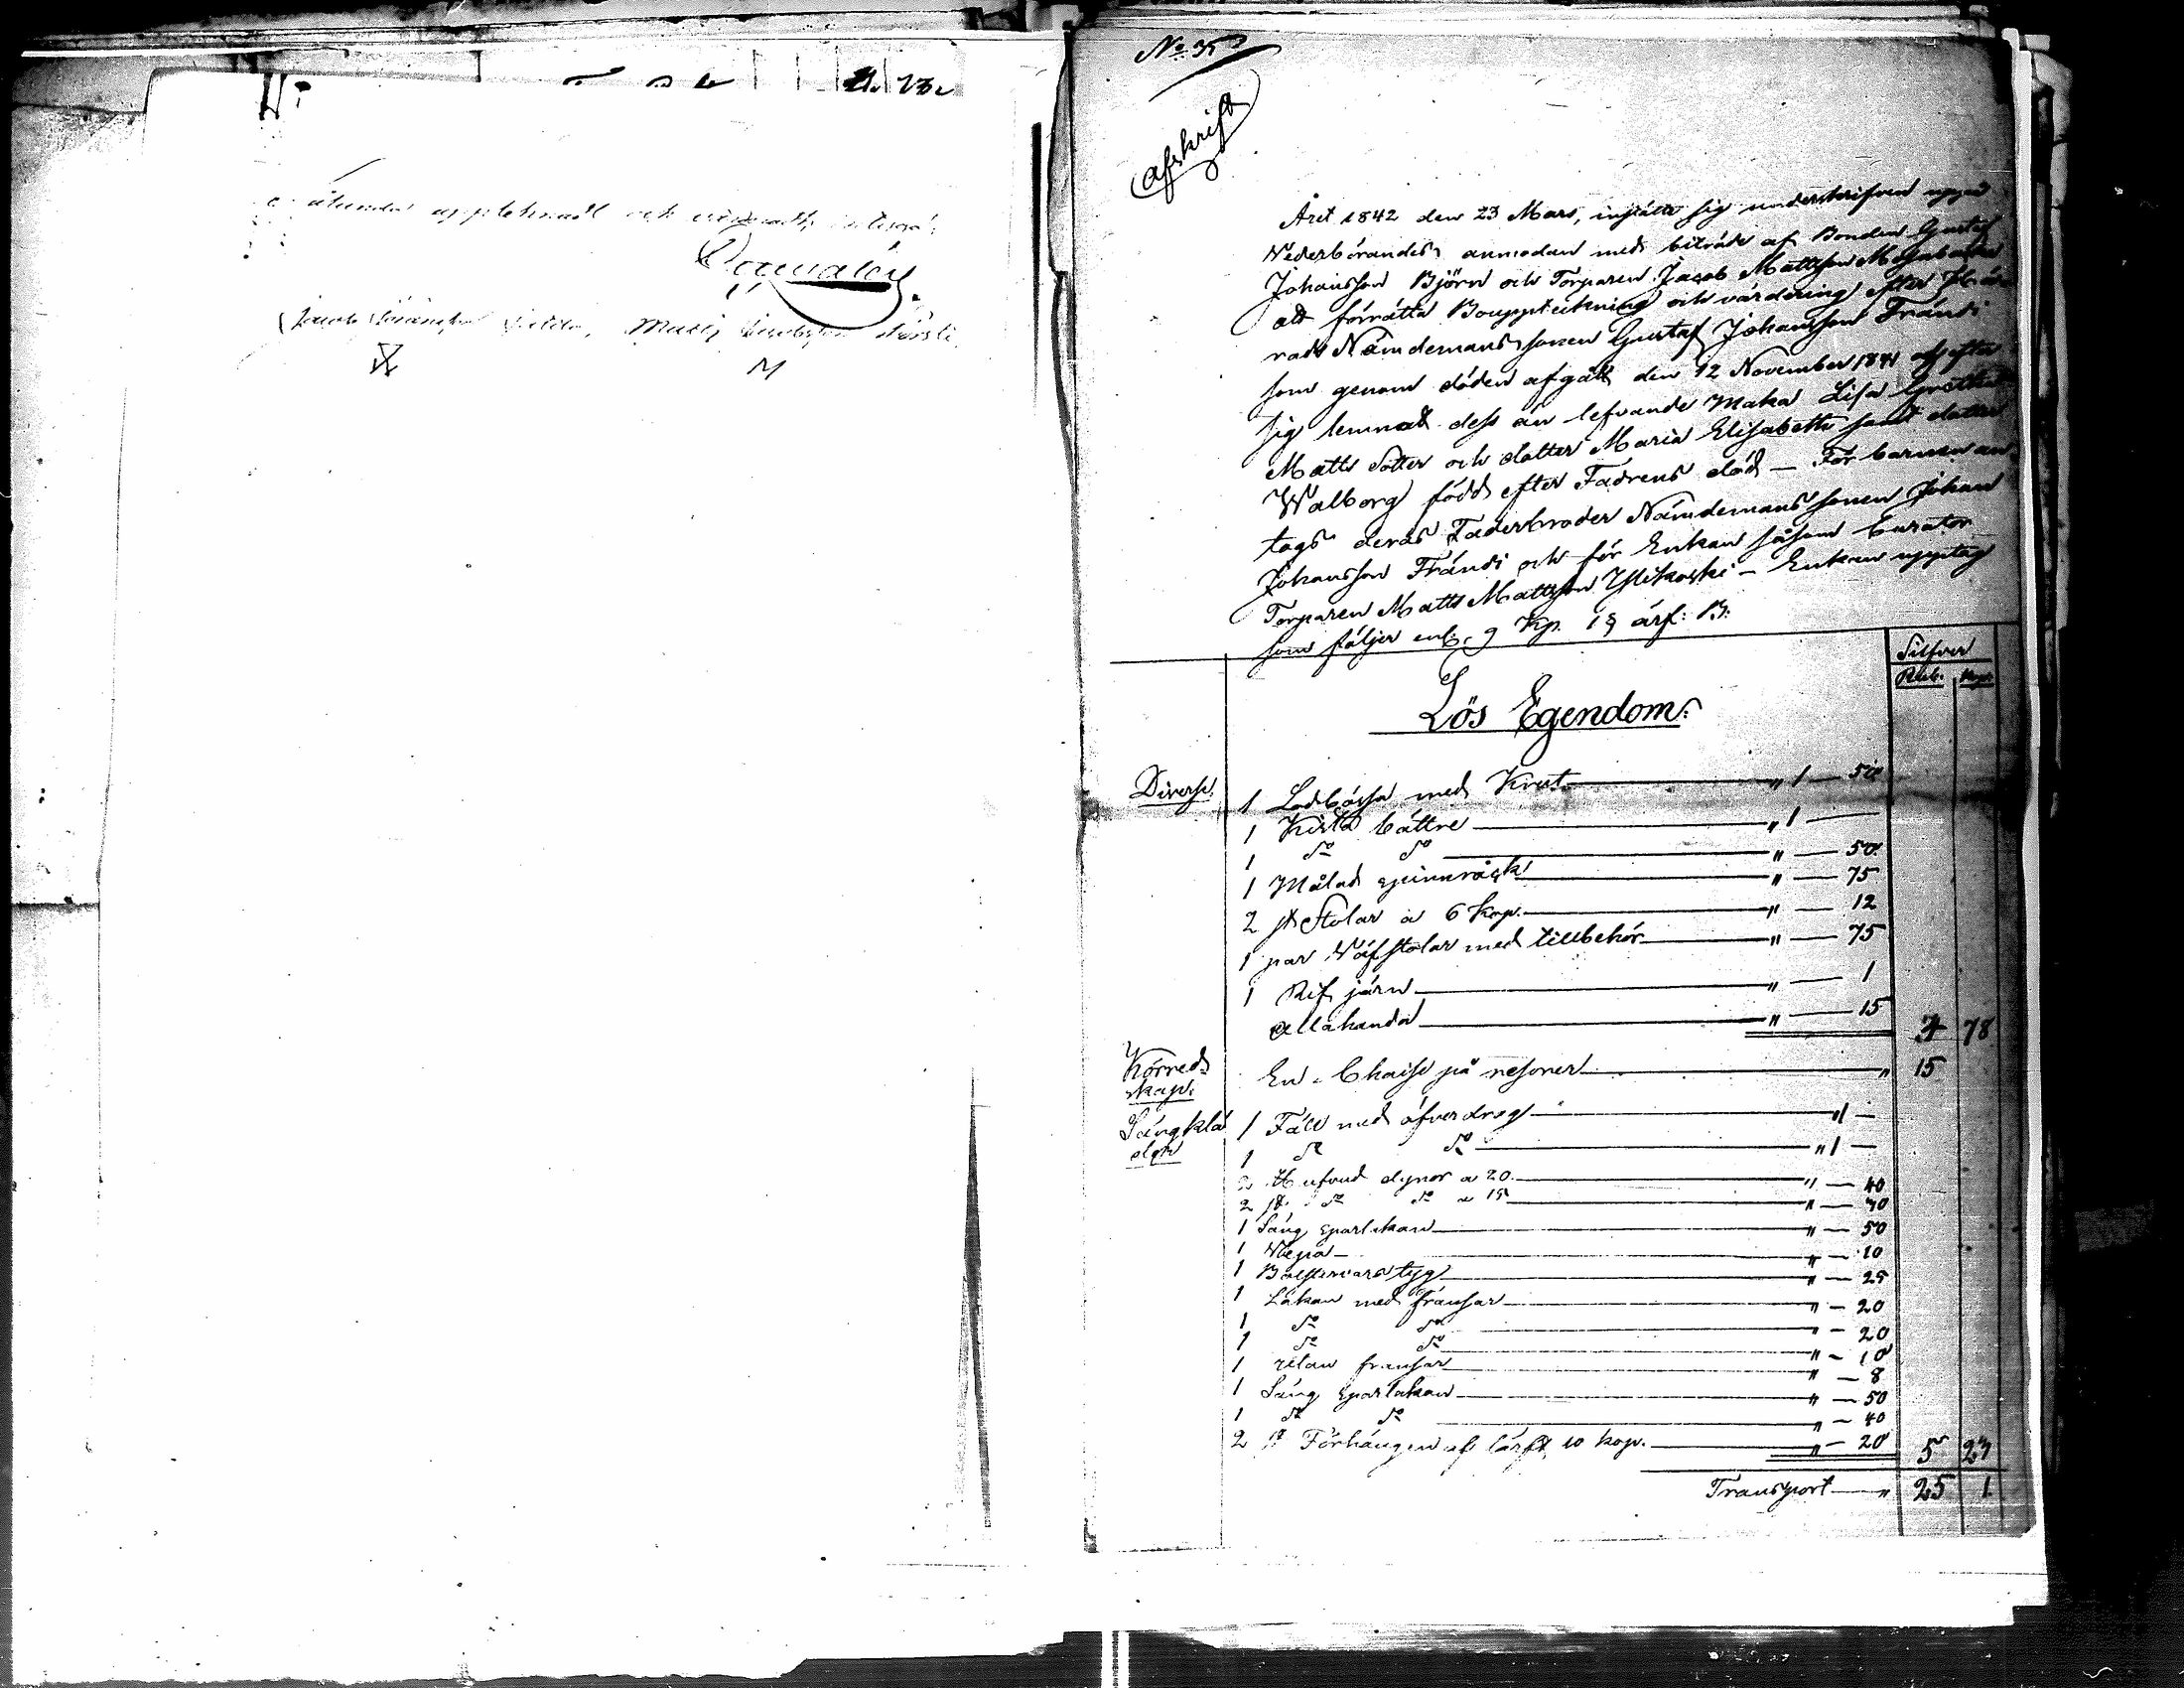 23.
åtundar upptecknadt och värderadt,
Jacob
Matts
No 35
Afskrift
Året 1842 den 23 Mars, instälte sig underskrifven uppå
Wederbörandes anmodan med biträde af Bonden Gustaf
Johansson Björn och Torparen Jacob Mattsson
att förrätta Bouppteckning och värdering efter
Nämdemans sonen Gustaf Johansson Frändi
som genom döden afgått den 12 November 1841 och efter
sig lemnat dess än lefvande Maka Lisa Greta
Matts dotter och dotter Maria Elisabeth samt dotter
Walborg född efter Fadrens död — För barnen an-
togs deras Faderbroder Nämdemans sonen Johan
Johansson Frändi och för Enkan såsom Curator
Torparen Matts Mattsson Ylikoski — Enkan upptog
som följer enl. 9 Kp. 1 § ärf: B:
Silfver
Rub. Kop.
Lös Egendom.
Diverse.
1 Lodbössa med Krut — " 1 — 50
1 Kista bättre — " 1 —
1 do do — " — 50
1 Målad spinnråck — " — 75
2 st Stolar a 6 kop. — " — 12
1 par Wäfstolar med tillbehör — " — 75
1 Rif järn — " — 1
Allahanda — " — 15 78
Körred-
skap.
En Chaise på resorer — " 15
Sängklä-
der
1 Fäll med öfverdrag — " 1 —
1 do do — " 1 —
2 Hufvud dynor a 20 — " — 40
2 st do do a 15 — " — 30
1 Säng sparlakan — " — 50
1 Wepa — " — 10
1 Bolstervars tyg — " — 25
1 Lakan med fransar — " — 20
1 do do — " — 20
1 do do — " — 10
1 utan fransar — " — 8
1 Säng sparlakan — " — 50
1 do do — " — 40
2 st Förhängen af lärft 10 kop. — " — 20 5 23
Transport — " 25 1